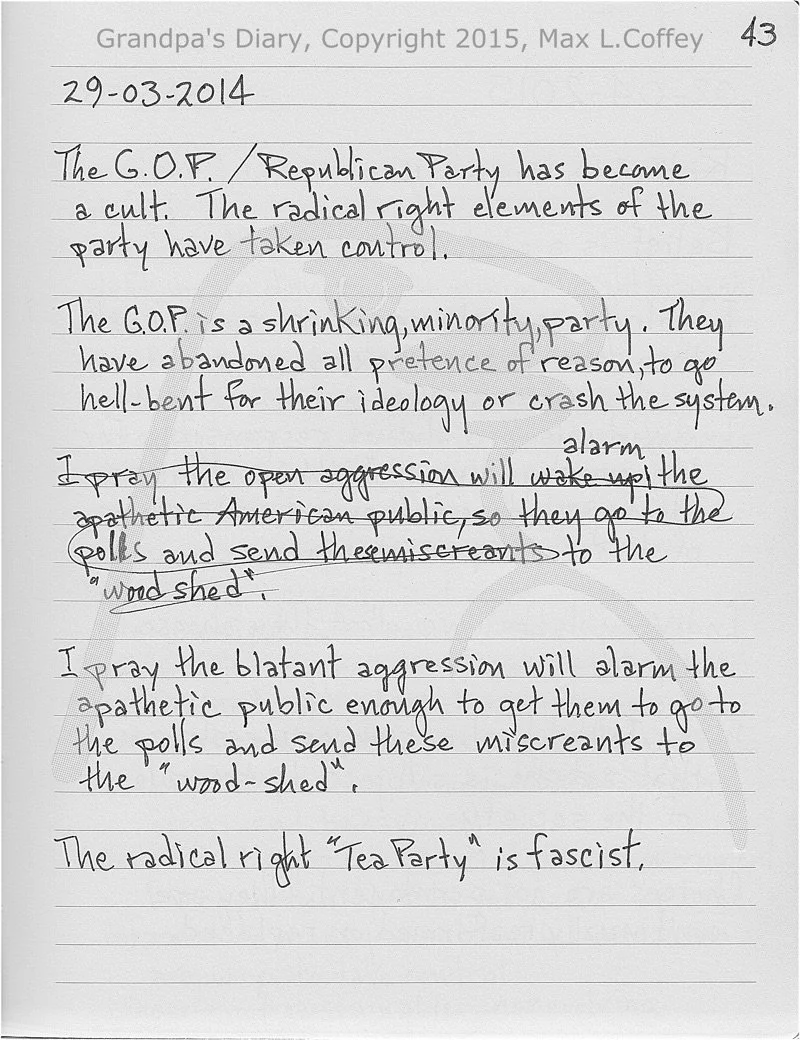 Grandpa's Diary, Copyright 2015, Max L.Coffey
43
29-03-2014
The G.O.P. / Republican Party has become
a cult. The radical right elements of the
party have taken control.
The G.O.P. is a shrinking, minority, party. They
have abandoned all pretence of reason, to go
hell-bent for their ideology or crash the system.
alarm
I pray the open aggression will wake up the
apathetic American public, so they go to the
polls and send these miscreants to the
"wood shed".
I pray the blatant aggression will alarm the
apathetic public enough to get them to go to
the polls and send these miscreants to
the "wood-shed".
The radical right "Tea Party" is fascist.